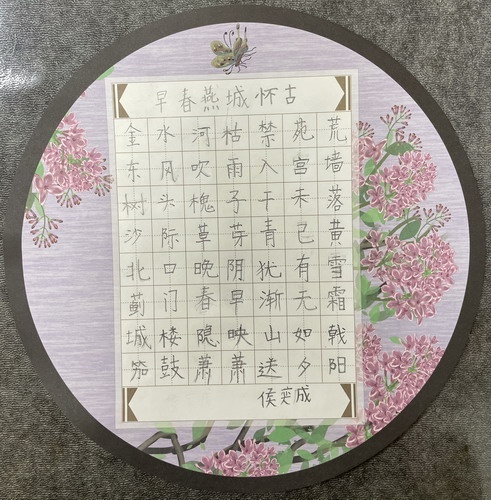 早春燕城怀古
金水河枯禁苑荒
东风吹雨入宫墙
树头槐子干未落
沙际草芽青已黄
北口晚阴犹有雪
蓟门春早渐无霜
城楼隐映山如戟
笳鼓萧萧送夕阳
侯奕成